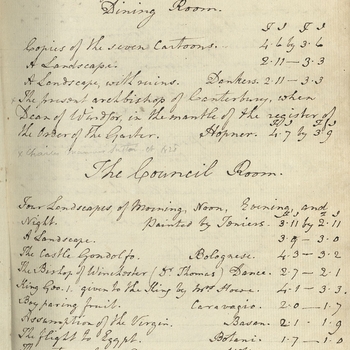 Dining Room.
F I F I
Copies of the seven Cartoons.. 4.6 by 3.6
A Landscape. 2.11 - 3.3
A Landscape, with ruins. Dankers. 2.11 - 3.3
The present archbishop of Canterbury, when
Dean of Windsor, in the mantle of the register of
the order of the Garter. Hopner. 4.7 by 3.9
The Council Room.
Four Landscapes of Morning, Noon, Evening, and
Night. Painted by Teniers. 3.11 by 2.11
A Landscape. 3.9 - 3.0
The Castle Gondolfo. Bolognese. 4.3 - 3.2
The Bishop of Winchester (Dr Thomas) Dance. 2.7 - 2.1
King Geo. 1. given to the King by Mrs 4.1 - 3.3
Boy paring fruit. Carravagio. 2.0 - 1.7
Assumption of the Virgin. Basan. 2.1 - 1.9
The flight to Egypt. Botani. 1.7 - 1.0